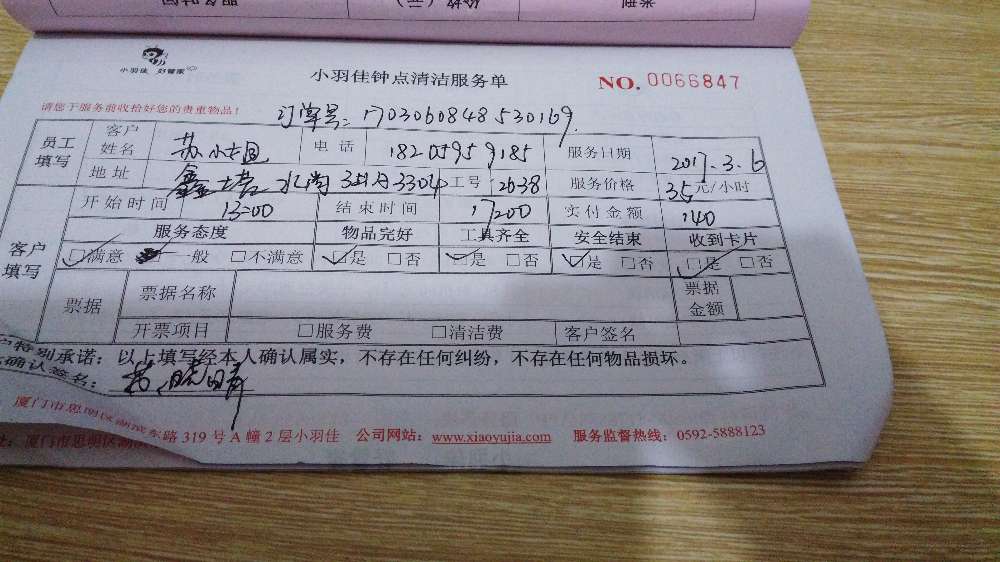 小羽佳 好管家
小羽佳钟点清洁服务单
NO. 0066847
请您于服务前收拾好您的贵重物品!
订单号: 1703060848530169
员工填写 客户姓名 苏小姐 电话 18205959185 服务日期 2017.3.6
地址 鑫塔水尚 3304 工号 2638 服务价格 35元/小时
开始时间 13:00 结束时间 17:00 实付金额 140
客户填写 服务态度 物品完好 工具齐全 安全结束 收到卡片
☑满意 一般 □不满意 ☑是 □否 ☑是 □否 ☑是 □否 ☑是 □否
票据 票据名称 票据金额
开票项目 □服务费 □清洁费 客户签名
户特别承诺: 以上填写经本人确认属实, 不存在任何纠纷, 不存在任何物品损坏。
确认签名:
厦门市思明区
东路 319 号 A 幢 2 层小羽佳 公司网站: www.xiaoyujia.com 服务监督热线: 0592-5888123